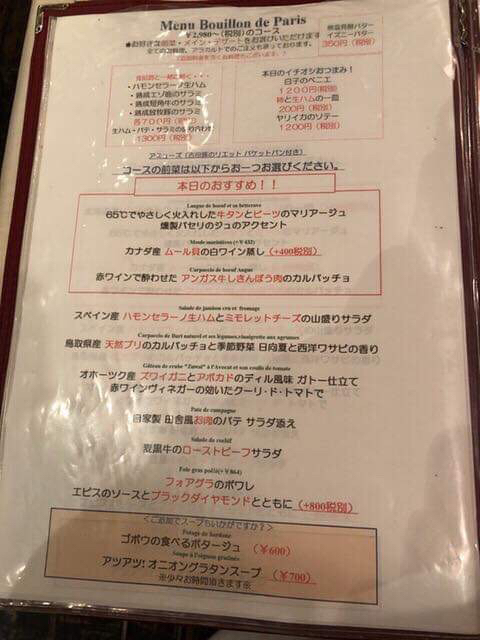 Menu Bouillon de Paris
￥2,980～(税別)のコース
●お好きな前菜・メイン・デザートをお選びいただけます
全てのご料理、アラカルトでのご注文も承っております。
無塩発酵バター
イズニーバター
350円(税別)
・ハモンセラーノ生ハム
・熟成エゾ鹿のサラミ
・熟成短角牛のサラミ
・熟成放牧豚のサラミ
各700円(税別)
生ハム・パテ・サラミの盛り合わせ
1300円(税別)
本日のイチオシおつまみ！
白子のベニエ
1200円(税別)
柿と生ハムの一皿
200円(税別)
ヤリイカのソテー
1200円(税別)
アミューズ (古白豚のリエット バケットパン付き)
コースの前菜は以下からお一つお選びください。
本日のおすすめ！！
Langue de boeuf et sa betterave
65℃でやさしく火入れした牛タンとビーツのマリアージュ
燻製パセリのジュのアクセント
Moule marinières (+￥432)
カナダ産 ムール貝の白ワイン蒸し (+400税別)
Carpaccio de boeuf Angus
赤ワインで酔わせた アンガス牛しきんぼう肉のカルパッチョ
Salade de jambon cru et fromage
スペイン産 ハモンセラーノ生ハムとミモレットチーズの山盛りサラダ
Carpaccio de Buri naturel et ses légumes,vinaigrette aux agrumes
鳥取県産 天然ブリのカルパッチョと季節野菜 日向夏と西洋ワサビの香り
Gâteau de crabe "Zuwai" à l'Avocat et son coulis de tomate
オホーツク産 ズワイガニとアボカドのディル風味 ガトー仕立て
赤ワインヴィネガーの効いたクーリ・ド・トマトで
Pate de campagne
自家製 田舎風お肉のパテ サラダ添え
Salade de rosbif
麦黒牛のローストビーフサラダ
Foie gras poêlé(+￥864)
フォアグラのポワレ
エピスのソースとブラックダイヤモンドとともに (+800税別)
＜ご追加でスープもいかがですか？＞
Potage de bardane
ゴボウの食べるポタージュ (￥600)
Soupe à l'oignon gratinée
アツアツ！オニオングラタンスープ (￥700)
※少々お時間頂きます※